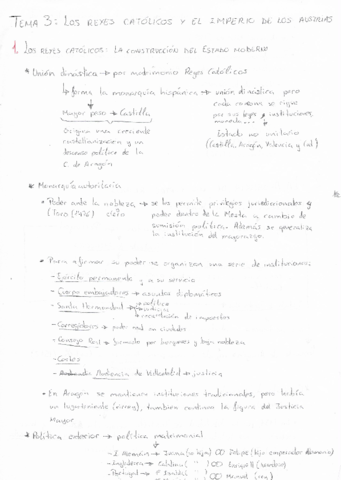 TEMA 3: LOS REYES CATÓLICOS Y EL IMPERIO DE LOS AUSTRIAS
1. LOS REYES CATÓLICOS: LA CONSTRUCCIÓN DEL ESTADO MODERNO
* Unión dinástica → por matrimonio Reyes Católicos
↳ forma la monarquía hispánica → unión dinástica pero
cada se rige
Mayor peso → Castilla por sus leyes, instituciones,
moneda...
Origina una creciente
castellanización y un Estado no unitario
político de la (Castilla, Aragón, Valencia y Cat)
C. de Aragón
* Monarquía autoritaria
• Poder ante la nobleza → se les permite privilegios jurisdiccionales y
(Toro 1476) poder dentro de la Mesta a cambio de
sumisión política. Además se generaliza
la institución del mayorazgo.
• Para afirmar su poder se organizan una serie de instituciones:
- Ejército permanente → a su servicio
- Cuerpo embajadores → asuntos diplomáticos
- Santa Hermandad
→ recaudación de impuestos
- Corregidores → poder real en ciudades
- Consejo Real → formado por burgueses y baja nobleza
- Cortes
- Audiencia de Valladolid → justicia
• En Aragón se mantienen instituciones tradicionales, pero había
un lugarteniente (virrey), también continúa la figura de Justicia
Mayor.
* Política exterior → política matrimonial
- I. Alemán → Juana (su hija) ∞ Felipe (hijo emperador alemán)
- Inglaterra → Catalina ∞ Enrique 8
- Portugal → ∞ Manuel (rey)